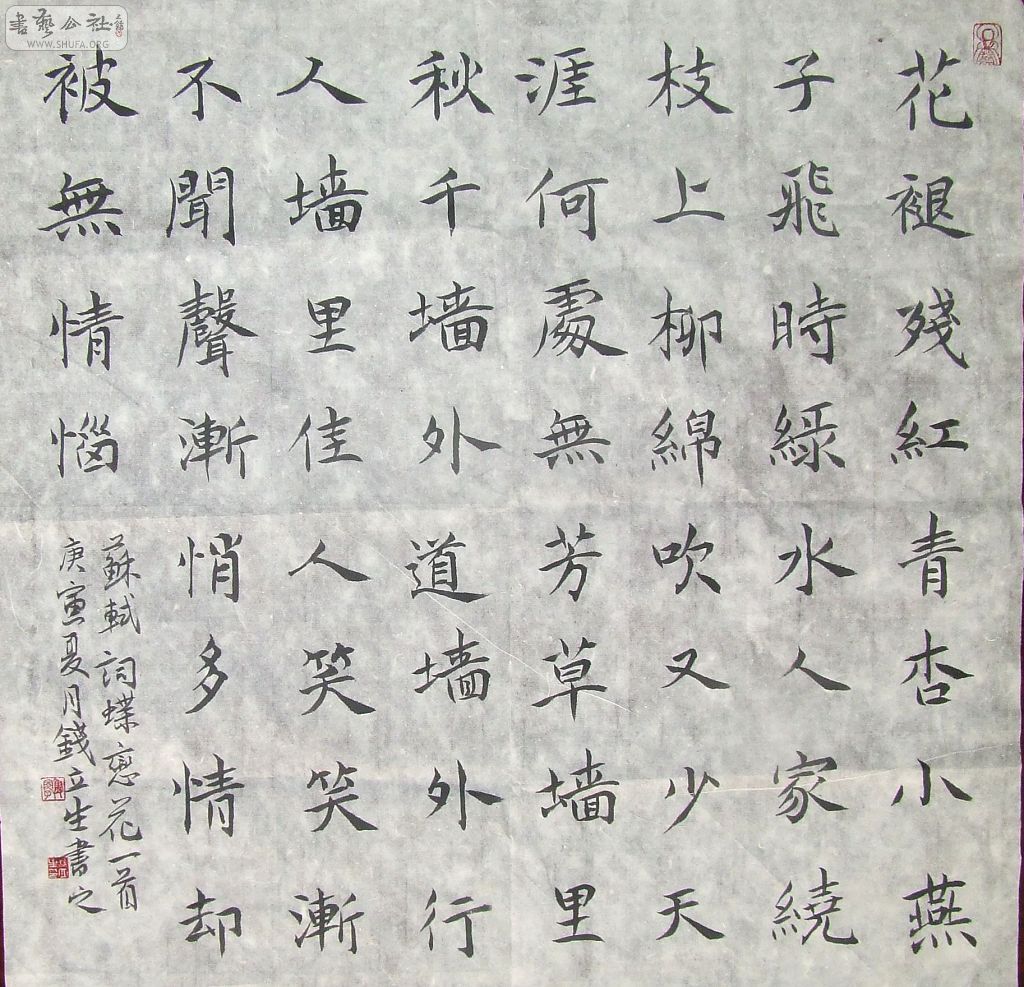 花褪殘紅青杏小燕
子飛時綠水人家繞
枝上柳綿吹又少天
涯何處無芳草墙里
秋千墙外道墙外行
人墙里佳人笑笑漸
不聞聲漸悄多情却
被無情惱
蘇軾詞蝶戀花一首
庚寅夏月錢立生書之
書藝公社
WWW.SHUFA.ORG